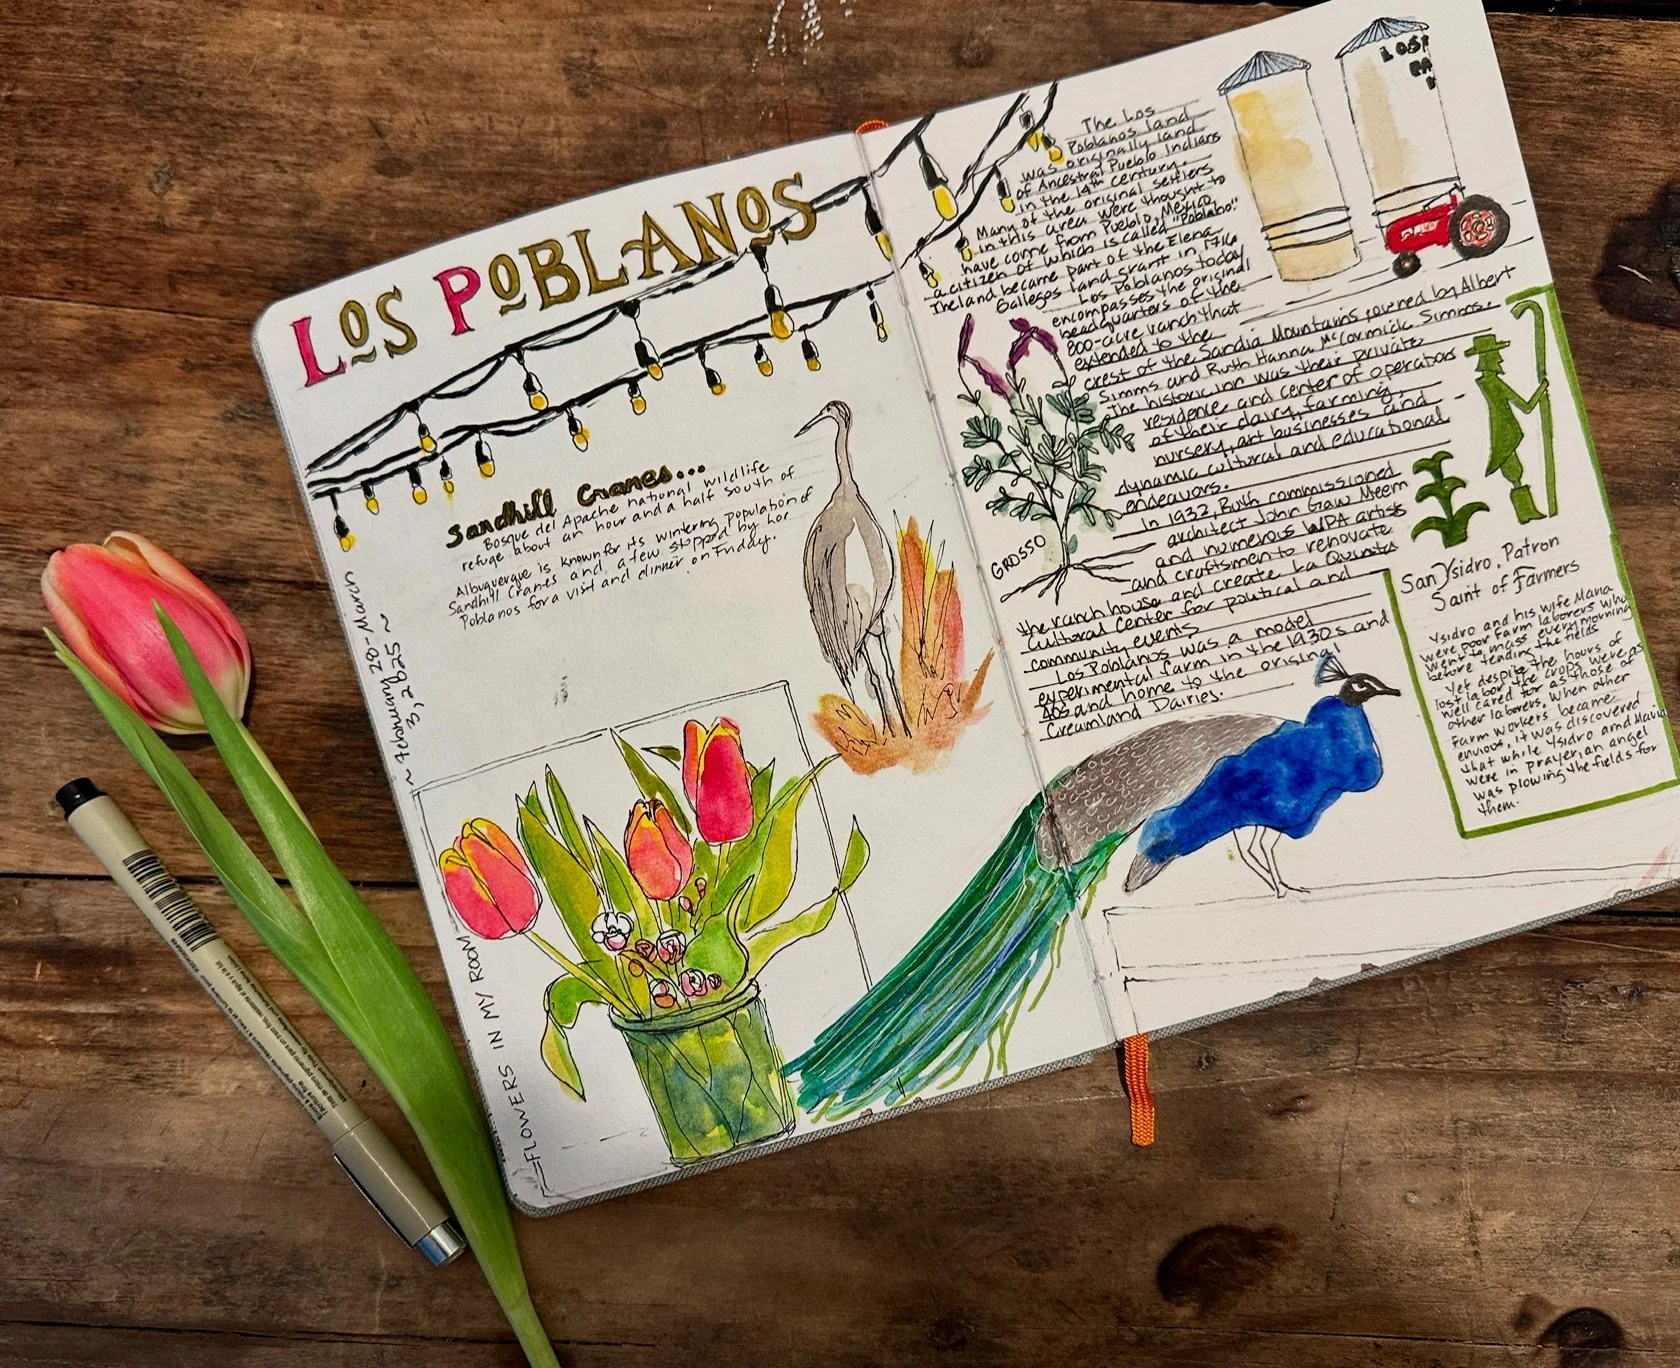 LOS POBLANOS
Sandhill Cranes...
Bosque del Apache national wildlife
refuge about an hour and a half south of
Albuquerque is known for its wintering population of
Sandhill Cranes and a few stopped by Los
Poblanos for a visit and dinner on Friday.
~ February 28-March
3, 2025 ~
FLOWERS IN MY ROOM
The Los
Poblanos land
was originally land
of Ancestral Pueblo Indians
in the 14th century.
Many of the original settlers
in this area were thought to
have come from Pueblo, Mexico,
a citizen of which is called "Poblano."
The land became part of the Elena
Gallegos land grant in 1716
Los Poblanos today
encompasses the original
headquarters of the
800-acre ranch that
extended to the
crest of the Sandia Mountains owned by Albert
Simms and Ruth Hanna McCormick Simms.
The historic inn was their private
residence and center of operations
of their dairy, farming,
nursery, art businesses and
dynamic cultural and educational
endeavors.
In 1932, Ruth commissioned
architect John Gaw Meem
and numerous WPA artists
and craftsmen to renovate
the ranch house and create La Quinta
Cultural Center for political and
community events
Los Poblanos was a model
experimental farm in the 1930s and
40s and home to the original
Creamland Dairies.
GROSSO
LOS
San Ysidro, Patron
Saint of Farmers
Ysidro and his wife Maria
were poor farm laborers who
went to mass every morning
before tending the fields
Yet despite the hours of
lost labor the crops were as
well cared for as those of
other laborers. When other
farm workers became
envious, it was discovered
that while Ysidro and Maria
were in prayer, an angel
was plowing the fields for
them.